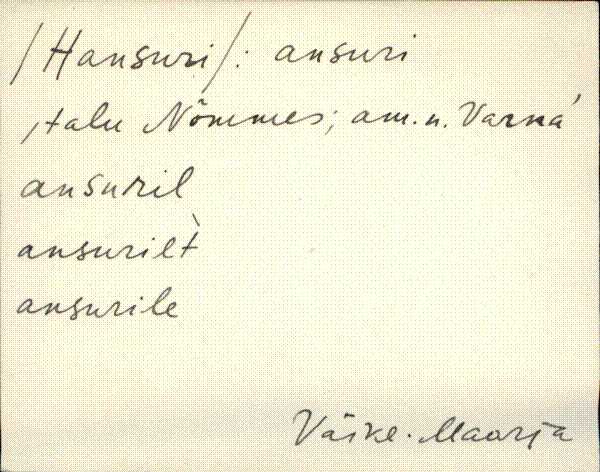 /Hansuri/: ansuri
, talu Nõmmes; am.n. Varká
ansuril
ansurilt̀
ansurile
Väike-Maarja